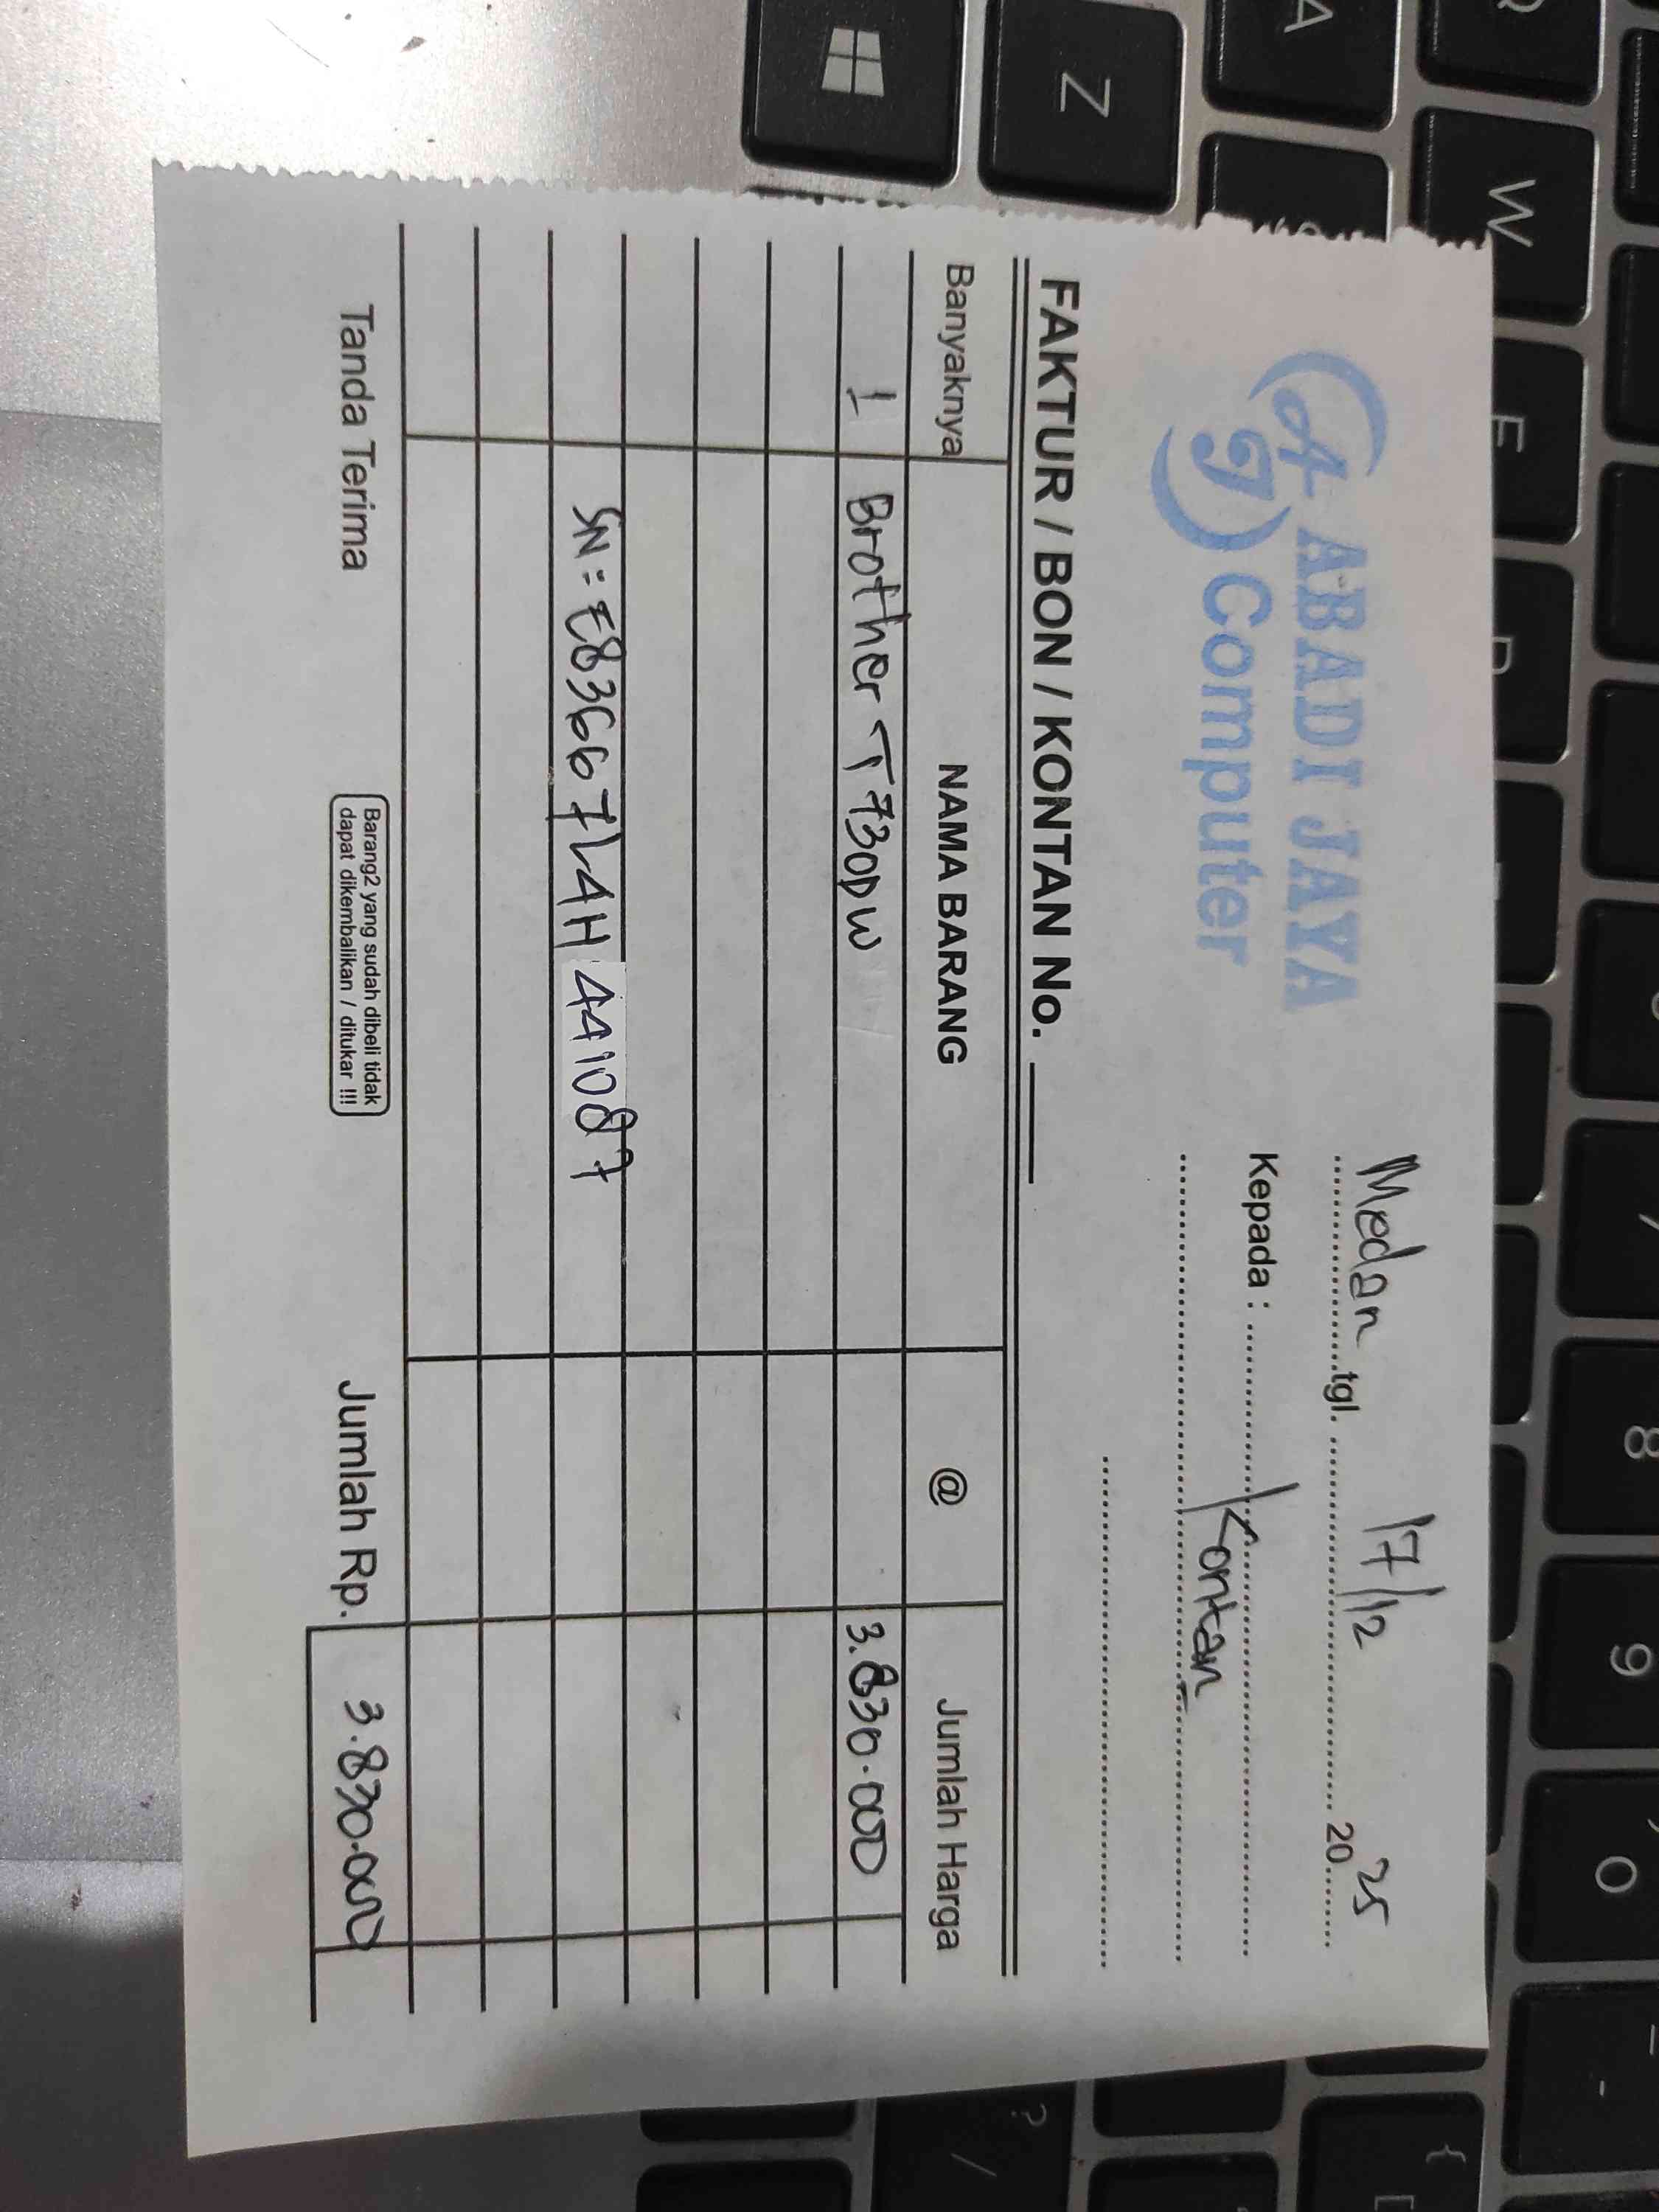 ABADI JAYA
Computer
Medan tgl. 17/12 2025
Kepada : Kontan
FAKTUR / BON / KONTAN No.
Banyaknya NAMA BARANG @ Jumlah Harga
1 Brother T730DW 3.830.000
SN = E83667L4H441087
Tanda Terima
Barang2 yang sudah dibeli tidak
dapat dikembalikan / ditukar !!!
Jumlah Rp. 3.830.000
Z
A
W
E
8
9
0
-
?
/
{